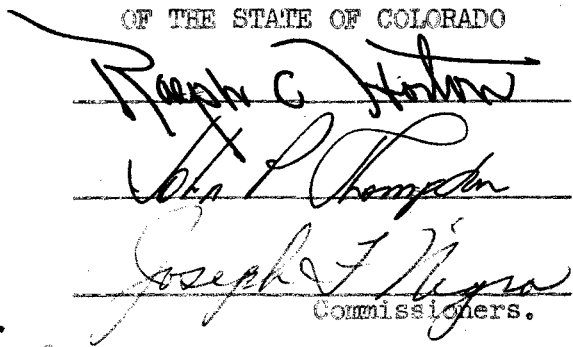 OF THE STATE OF COLORADO
Ralph C Horton
John P Thompson
Joseph F Nigro
Commissioners.